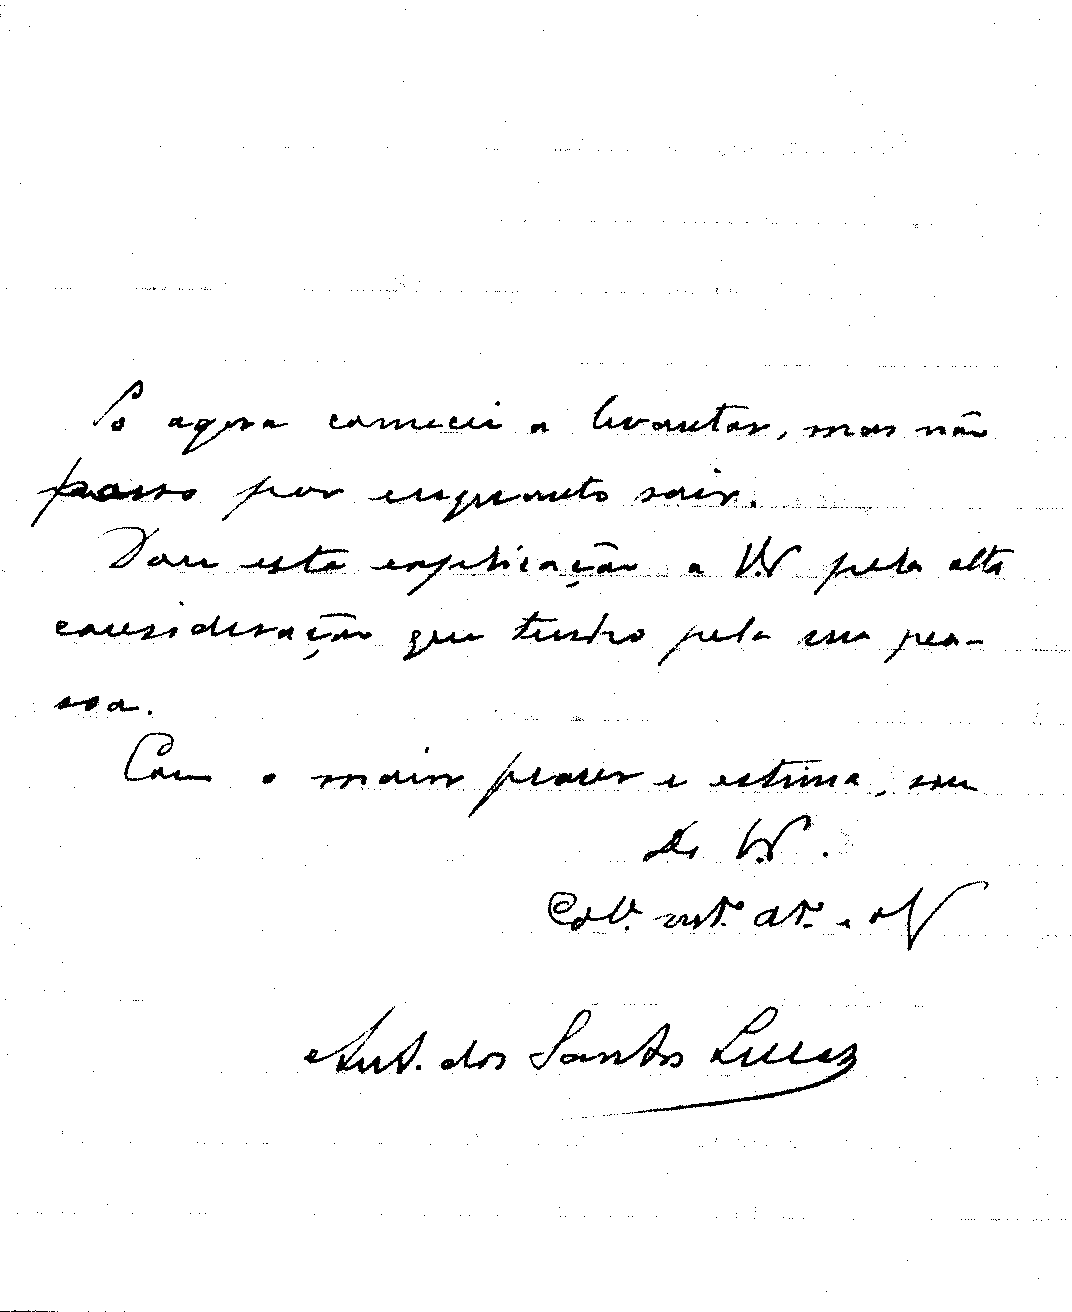 Só agora comecei a levantar, mas não
posso por enquanto sair.
Dou esta explicação a V. pela alta
consideração que tenho pela sua pes-
soa.
Com o maior prazer e estima, sou
De V.
Col.ª mt.º at.º e
Ant. dos Santos Lucas